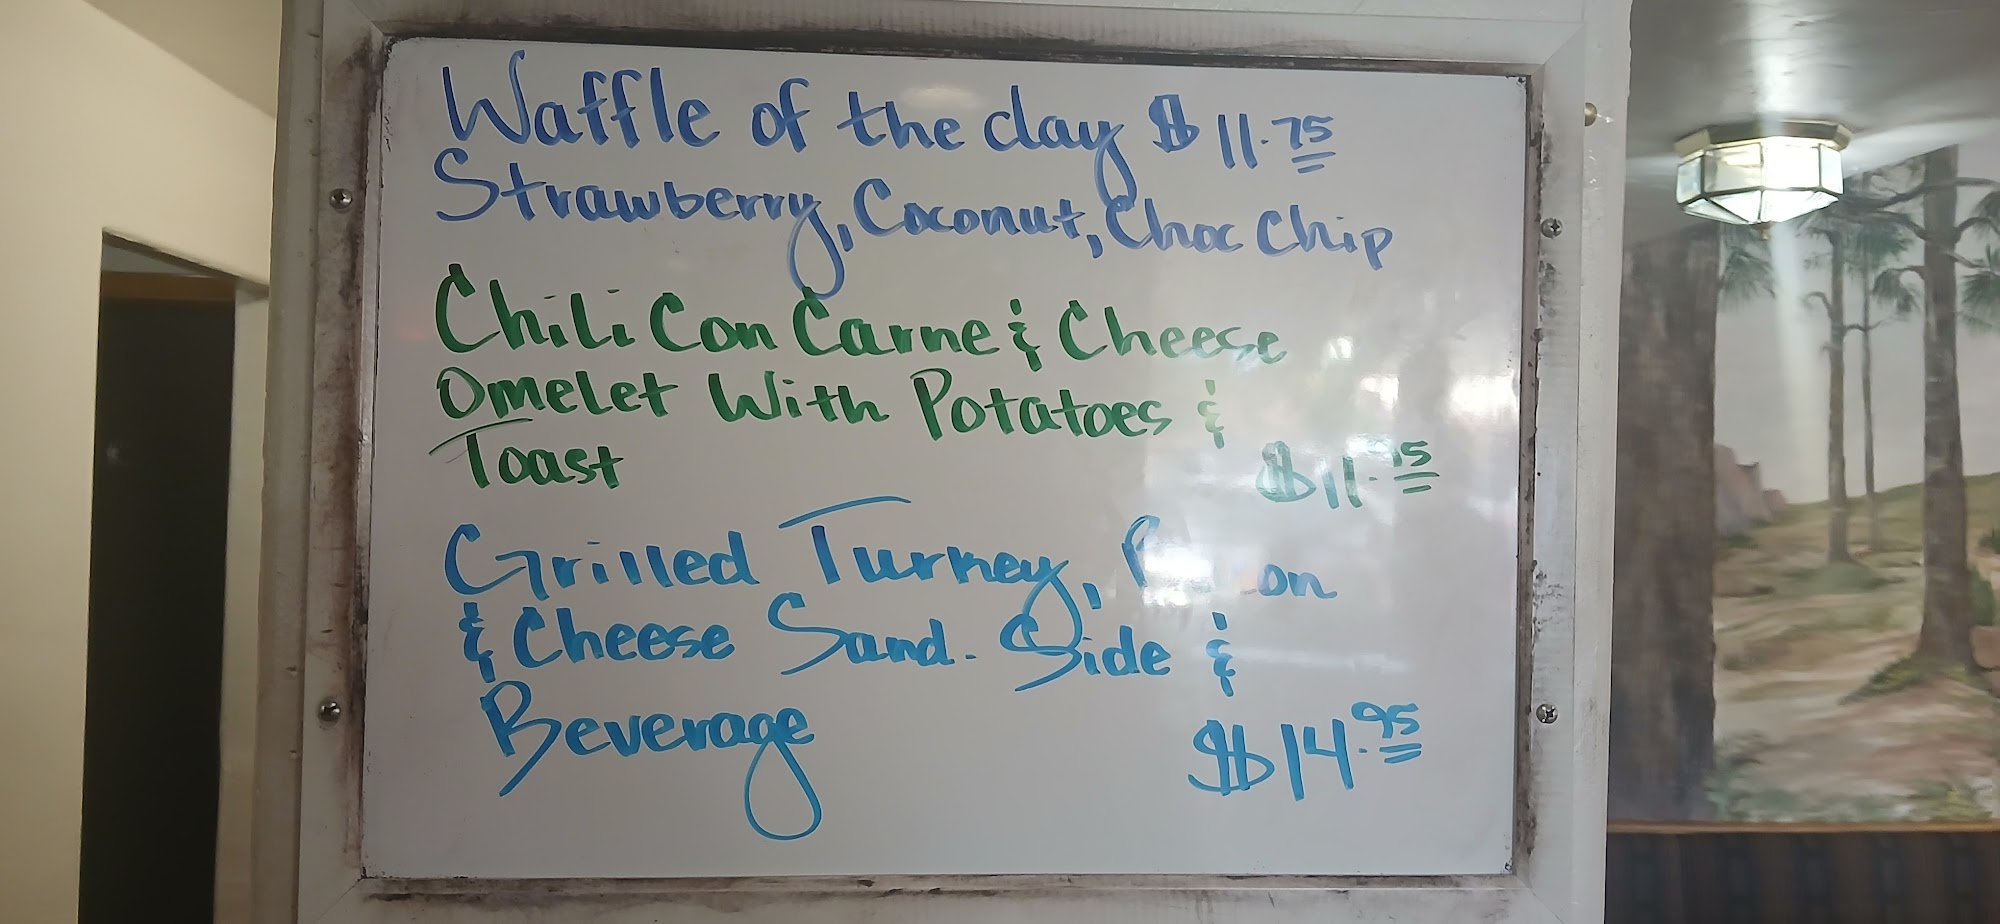 Waffle of the day $11.75
Strawberry, Coconut, Choc Chip
Chili Con Carne & Cheese
Omelet With Potatoes &
Toast
Grilled Turkey,
& Cheese Sand. Side &
Beverage $14.95